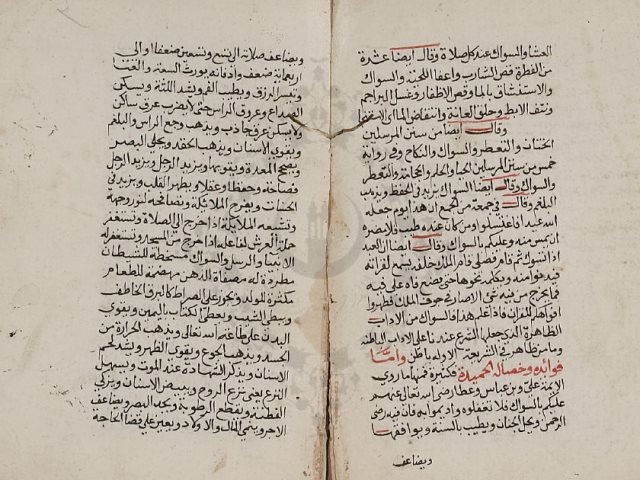 العشا والسواك عند كل صلاة وقال ايضا عشرة
من الفطرة قص الشارب واعفا اللحية والسواك
والاستنشاق بالما وقص الاظفار وغسل البراجم
ونتف الابط وحلق العانة وانتقاص الما اي الاستنجا
وقال ايضا من سنن المرسلين
الختان والتعطر والسواك والنكاح وفي رواية
خمس من سنن المرسلين الحيا والحلم والحجامة والتعطر
والسواك وقال ايضا السواك يزيد في الحفظ ويذهب
البلغم وقال في جمعة من الجمع ان هذا يوم جعله
الله عيدا فاغتسلوا ومن كان عنده طيب فلا يضره
ان يمس منه وعليكم بالسواك وقال ايضا ان العبد
اذا تسوك ثم قام فصلى قام الملك خلفه يسمع لقرائته
فيدنوا منه وبكلمة نحوها حتى يضع فاه على فيه
فما يخرج من فيه شي الا صار في جوف الملك فطهروا
افواهكم للقران فاذا علم هذا فالسواك من الاداب
الظاهرة الذي جعلها الشرع عندنا على الاداب الباطنة
وما من ظاهر في الشريعة الا وله باطن واما
فوائده وخصاله الحميدة فكثيرة فمنها ما روي
الايمة عن علي وبن عباس وعطا رضي الله تعالى عنهم
عليكم بالسواك فلا تغفلوه واديموا به فان فيه رضى
الرحمن ويطيب بالسنة ويوافقها
ويضاعف
ويضاعف صلاته الى تسع وتسعين ضعفا او الى
اربعماية ضعف وادمانه يورث السعة والغنا
وتيسر الرزق ويطيب الفم ويشد اللثة ويسكن
الصداع وعروق الراس حتى لا يضرب عرق ساكن
ولا يسكن عرق جاذب ويذهب وجع الراس والبلغم
ويقوي الاسنان ويذهب الحقد ويجلي البصر
ويصح المعدة ويقويها ويزيد الرجل ويزيد الرجل
فصاحة وحفظا وعقلا ويطهر القلب ويزيد في
الحسنات ويفرح الملائكة وتصافحه لنور وجهه
وتشيعه الملائكة اذا خرج الى الصلاة وتستغفر
حملة العرش لفاعله اذا خرج من المسجد وتستغفر له
الانبيا والرسل والسواك مسخطة للشيطان
مطردة له مصفاة للذهن مهضمة للطعام
مكثرة للولد ويجوز على الصراط كالبرق الخاطف
ويبطي الشيب ويعطى الكتاب باليمين ويقوي
البدن على طاعة الله تعالى ويذهب الحرارة من
الجسد ويذهب الجوع ويقوي الظهر ويشد لحم
الاسنان ويذكر الشهادة عند الموت ويسهل
النزع يعني نزع الروح ويبيض الاسنان ويزكي
الفطنة ويقطع الرطوبة ويحد البصر ويضاعف
الاجر وينمي المال والاولاد ويعين على قضا الحاجة